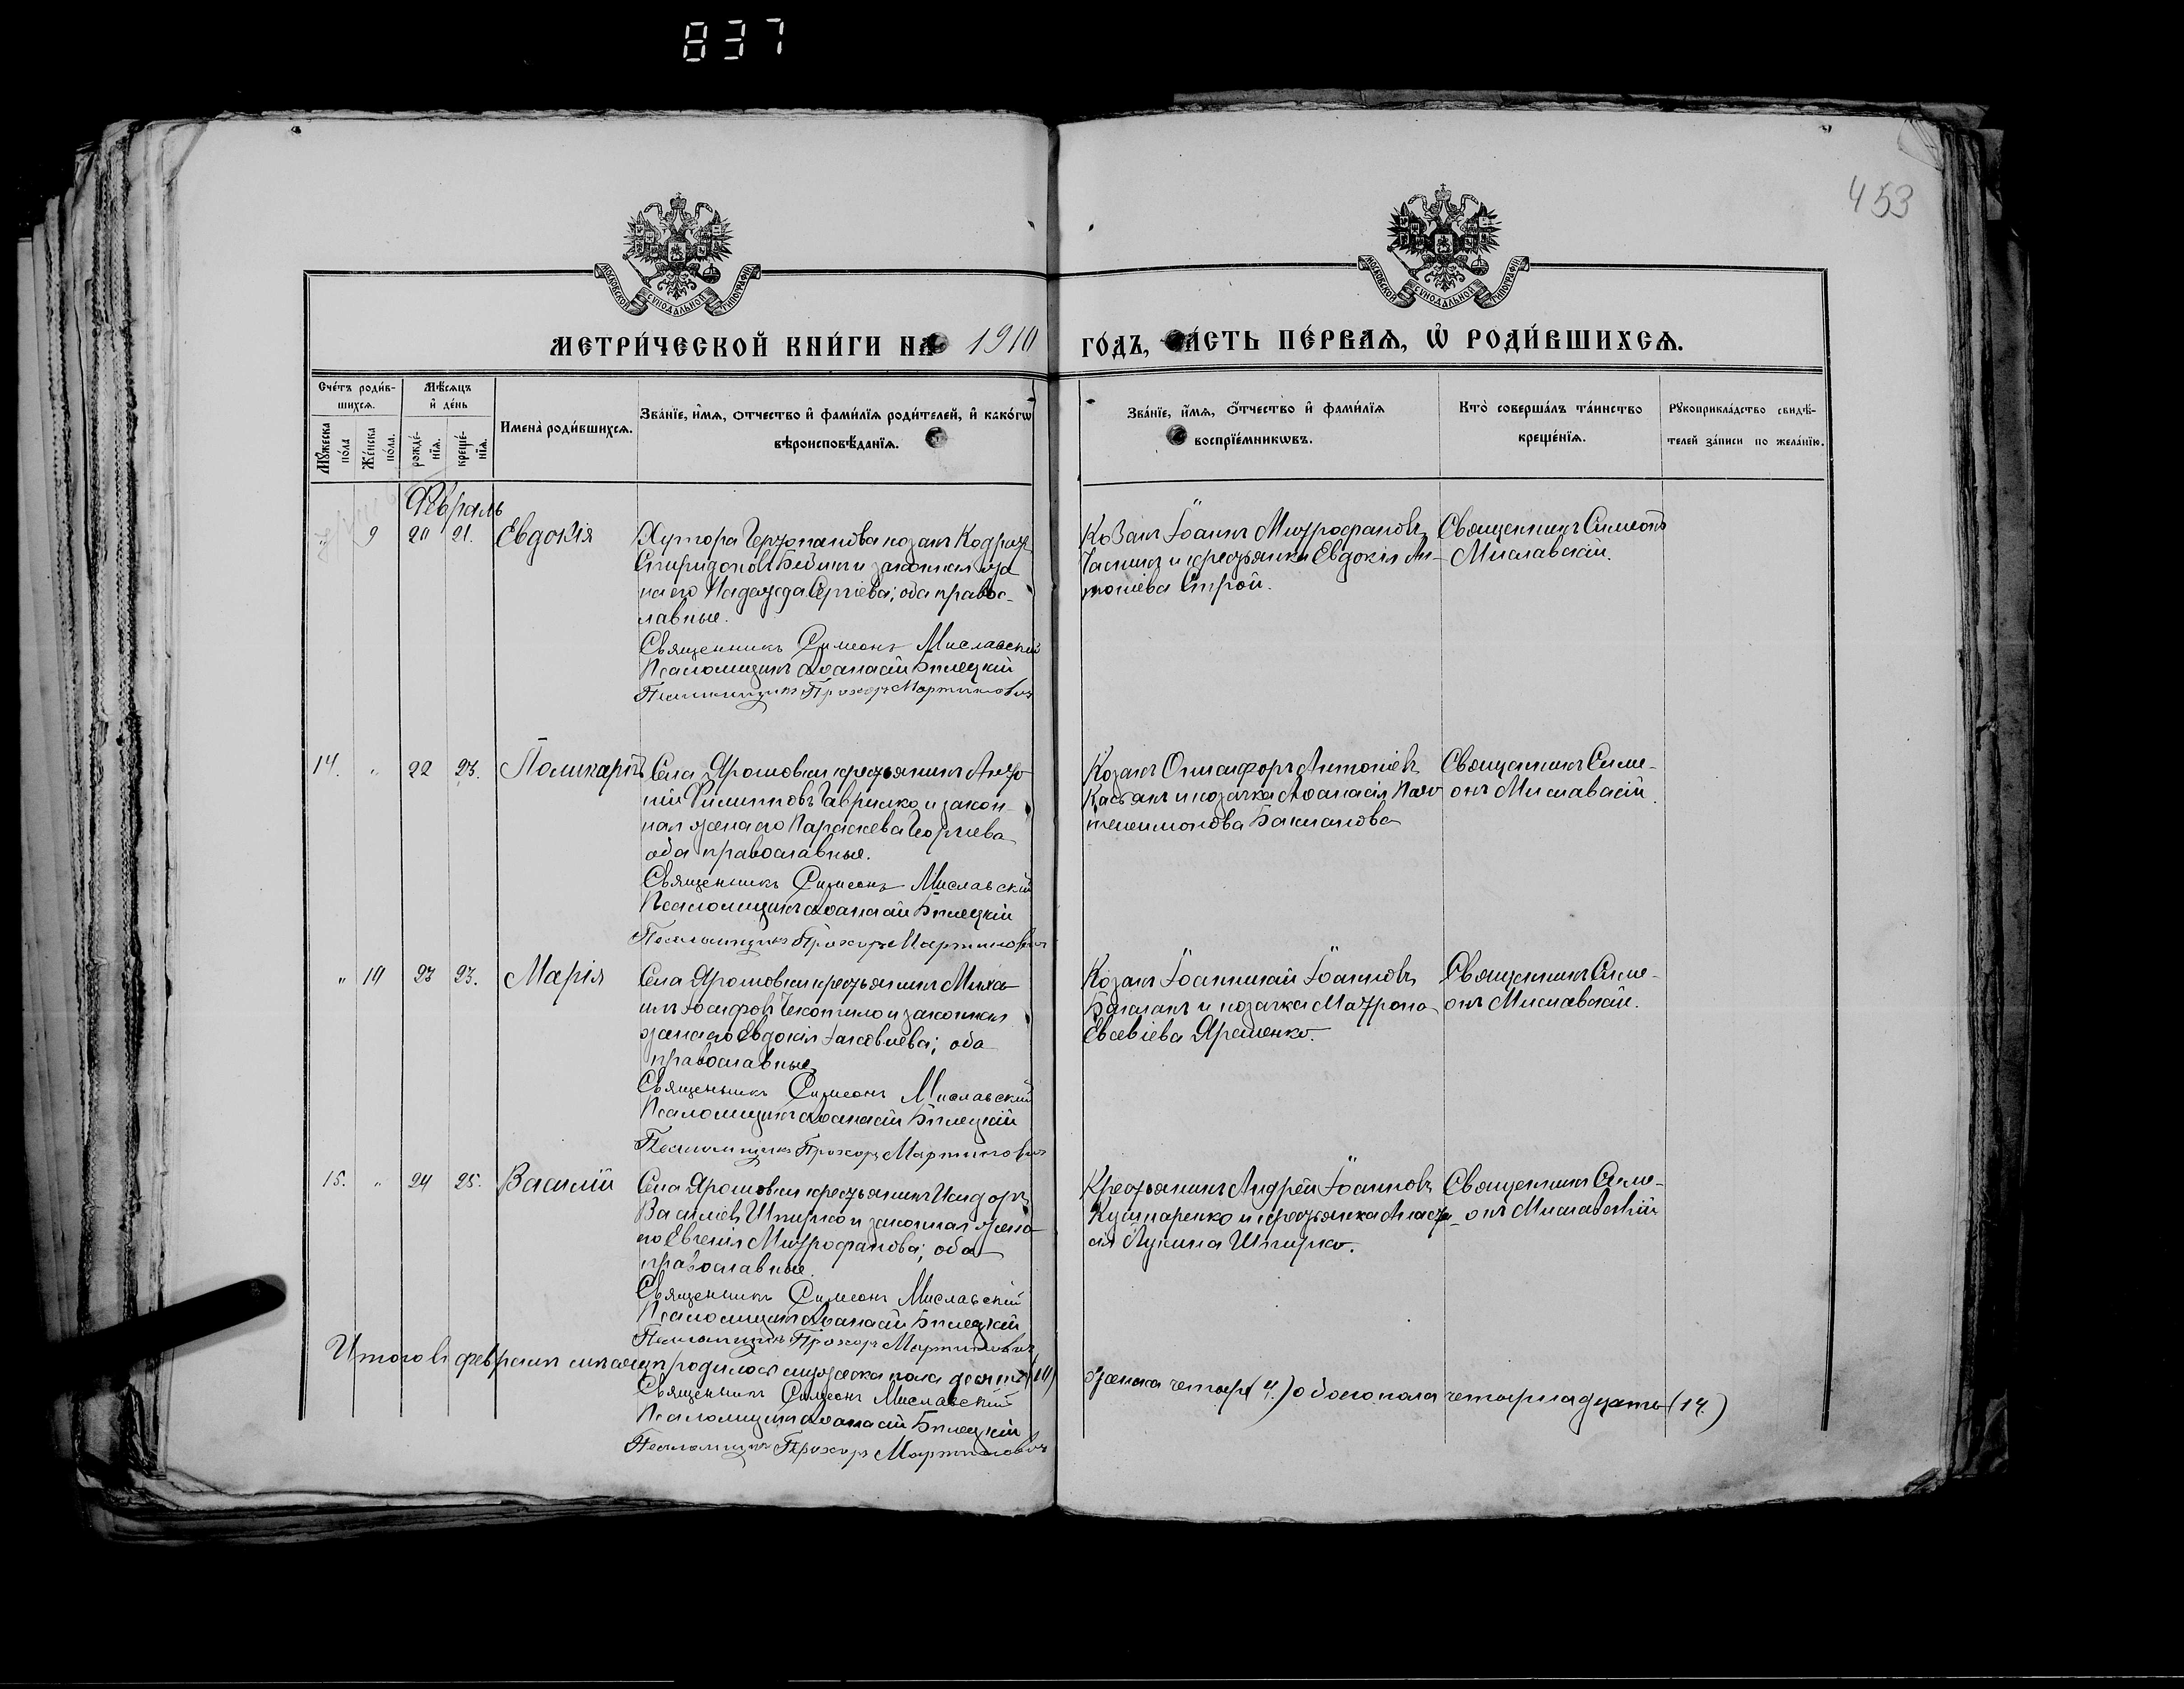 837
453
МОСКОВСКОЙ СУНОДАЛЬНОЙ ТИПОГРАФІИ
МОСКОВСКОЙ СУНОДАЛЬНОЙ ТИПОГРАФІИ
МЕТРИ́ЧЕСКОЙ КНИ́ГИ НА 1910
ГО́ДЪ, ЧА́СТЬ ПЕ́РВАѦ, Ѡ҆ РОДИ́ВШИХСѦ.
Сче́тъ роди́в-
шихсѧ.
Мꙋ́жеска
по́ла
Же́нска
по́ла.
Мѣ́сѧцъ
и҆ де́нь
рожде́-
нїѧ.
креще́-
нїѧ.
Имена̀ роди́вшихсѧ.
Зва́нїе, и҆́мѧ, о́тчество и҆ фами́лїѧ роди́телей, и҆ како́гѡ
вѣроисповѣ́данїѧ.
Зва́нїе, и҆́мѧ, о́тчество и҆ фами́лїѧ
воспрїе́мникѡвъ.
Кто̀ соверша́лъ та́инство
креще́нїѧ.
Рꙋкоприкла́дство свидѣ́-
телей за́писи по жела́нїю.
Февраль
9 20 21. Евдокія
Хутора Чертопанова козакъ Кодратъ
Спиридоновъ и законная же
на его Надежда Сергіева; оба правос-
лавные.
Священникъ Симеонъ Миславскій
Псаломщикъ Аѳанасій Бѣлецкій
Псаломщикъ Прохоръ Мартиновичъ
Козакъ Іоаннъ Митрофановъ
и крестьянка Евдокія Ан-
тоніева Строй.
Священникъ Симеонъ
Миславскій.
14. " 22 23. Поликарпъ
Села Ярошовки крестьянинъ Анто
ній Филипповъ Гаврилко и закон-
ная жена его Параскева Георгіева
оба православные.
Священникъ Симеонъ Миславскій
Псаломщикъ Аѳанасій Бѣлецкій
Псаломщикъ Прохоръ Мартиновичъ
Козакъ Онисифоръ Антоніевъ
Касьянъ и козачка Аѳанасія Пан
телеимонова Бакланова
Священникъ Симе-
онъ Миславскій.
" 10 23 23. Марія
Села Ярошовки крестьянинъ Миха
илъ Іосифовъ и законная
жена его Евдокія Іаковлева; оба
православные
Священникъ Симеонъ Миславскій
Псаломщикъ Аѳанасій Бѣлецкій
Псаломщикъ Прохоръ Мартиновичъ
Козакъ Іоанникій Іоанновъ
Бакланъ и козачка Матрона
Евсевіева Ярешенко.
Священникъ Симе-
онъ Миславскій.
15. " 24 25. Василій
Села Ярошовки крестьянинъ Исидоръ
Василіевъ Шпирко и законная жена
его Евгенія Митрофанова; оба
православные.
Священникъ Симеонъ Миславскій
Псаломщикъ Аѳанасій Бѣлецкій
Псаломщикъ Прохоръ Мартиновичъ
Крестьянинъ Андрей Іоанновъ
Кушнаренко и крестьянка Анаста
сія Лукина Шпирко.
Священникъ Симе-
онъ Миславскій
Итого въ февралѣ мѣсяцѣ родилось мужеска пола десять (10)
женска четыре (4.) обоего пола четырнадцать (14.)
Священникъ Симеонъ Миславскій
Псаломщикъ Аѳанасій Бѣлецкій
Псаломщикъ Прохоръ Мартиновичъ